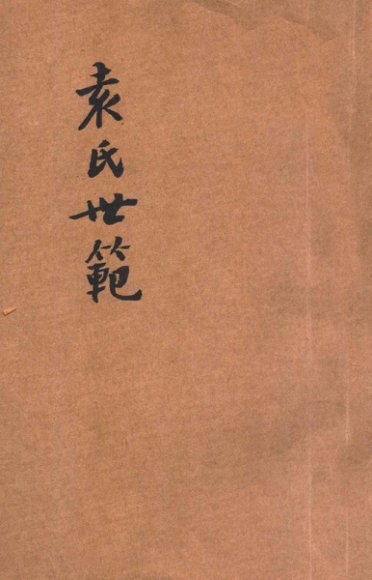 袁氏世範